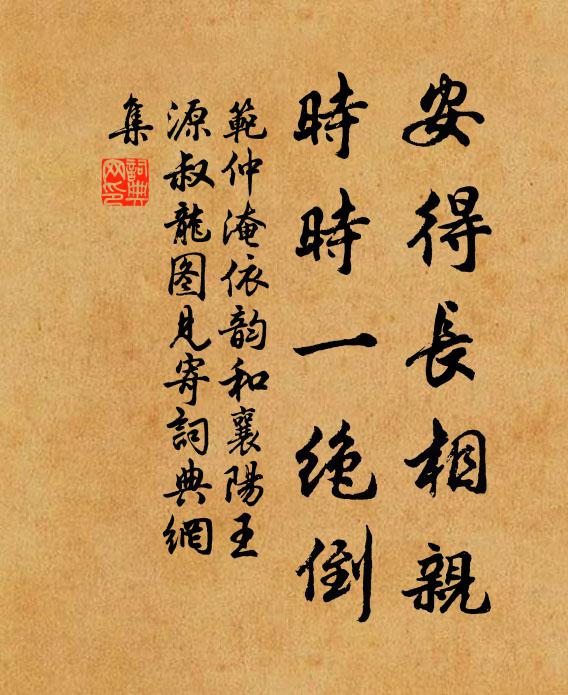 安得長相親
時時一绝倒
範仲淹依韵和襄陽王
源叔龍图見寄詞典網
集
詞典
网印